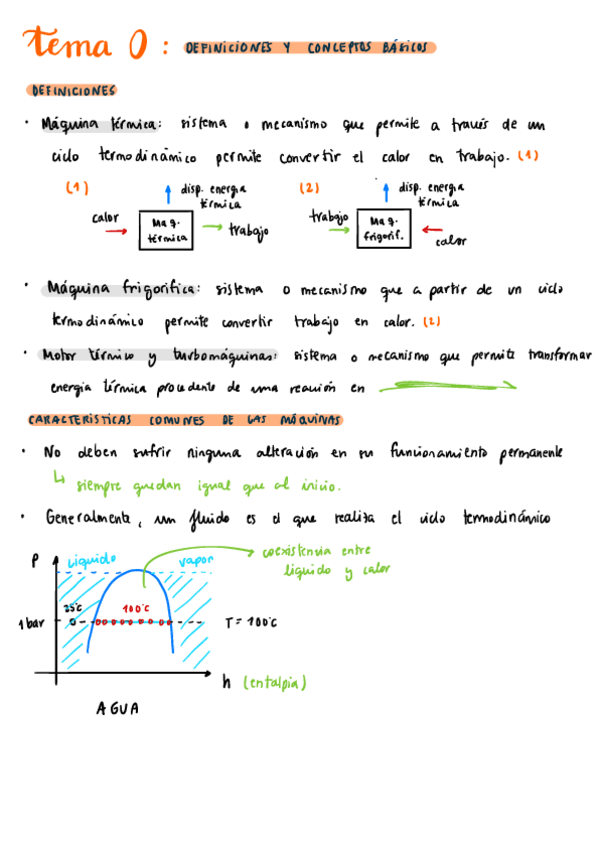 Tema 0: DEFINICIONES Y CONCEPTOS BÁSICOS
DEFINICIONES
· Máquina térmica: sistema o mecanismo que permite a través de un
ciclo termodinámico permite convertir el calor en trabajo. (1)
(1)
disp. energia
térmica
calor
Maq.
térmica
trabajo
(2)
disp. energia
térmica
trabajo
Maq.
frigorif.
calor
· Máquina frigorífica: sistema o mecanismo que a partir de un ciclo
termodinámico permite convertir trabajo en calor. (2)
· Motor térmico y turbomáquinas: sistema o mecanismo que permite transformar
energía térmica procedente de una reacción en
CARACTERÍSTICAS COMUNES DE LAS MÁQUINAS
· No deben sufrir ninguna alteración en su funcionamiento permanente
siempre quedan igual que al inicio.
· Generalmente, un fluido es el que realiza el ciclo termodinámico
P
líquido
vapor
coexistencia entre
líquido y calor
25°C
100°C
1 bar
T = 100°C
h (entalpia)
AGUA